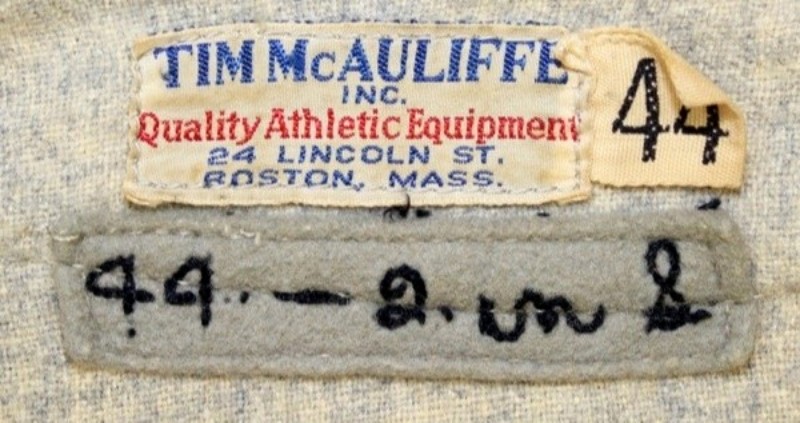 TIM McAULIFFE
INC.
Quality Athletic Equipment
24 LINCOLN ST.
BOSTON, MASS.
44
44 - 2.